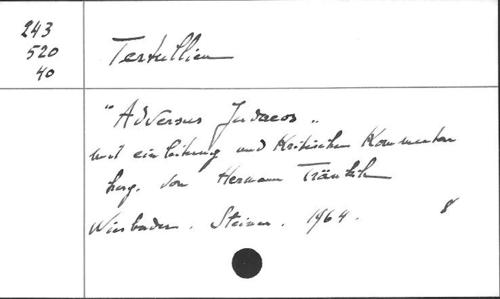 243
520
40
Tertullien
"Adversus Judaeos"
mit einleitung und Kritischem Kommentar
hrsg. von Hermann Tränkle
Wiesbaden. Steiner. 1964. 8